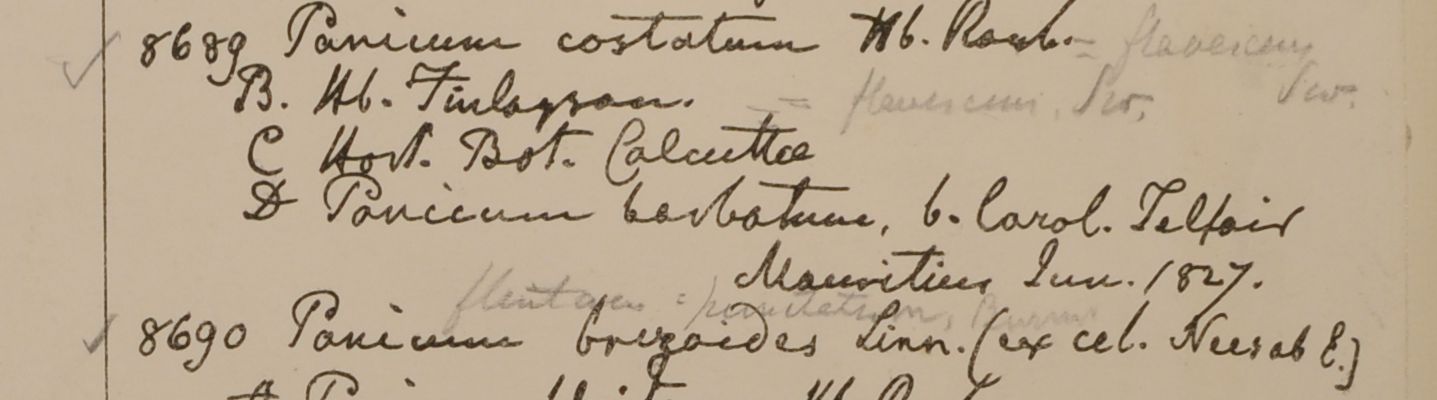 8689 Panicum costatum Hb. Roxb. = flavescens Sw.
B. Hb. Finlayson. = flavescens, Sw,
C Hort. Bot. Calcutta
D Panicum barbatum, b. Carol. Telfair
Mauritius Jun. 1827.
= punctatum, Burm
8690 Panicum brizoides Linn. (ex cel. Nees ab E.)